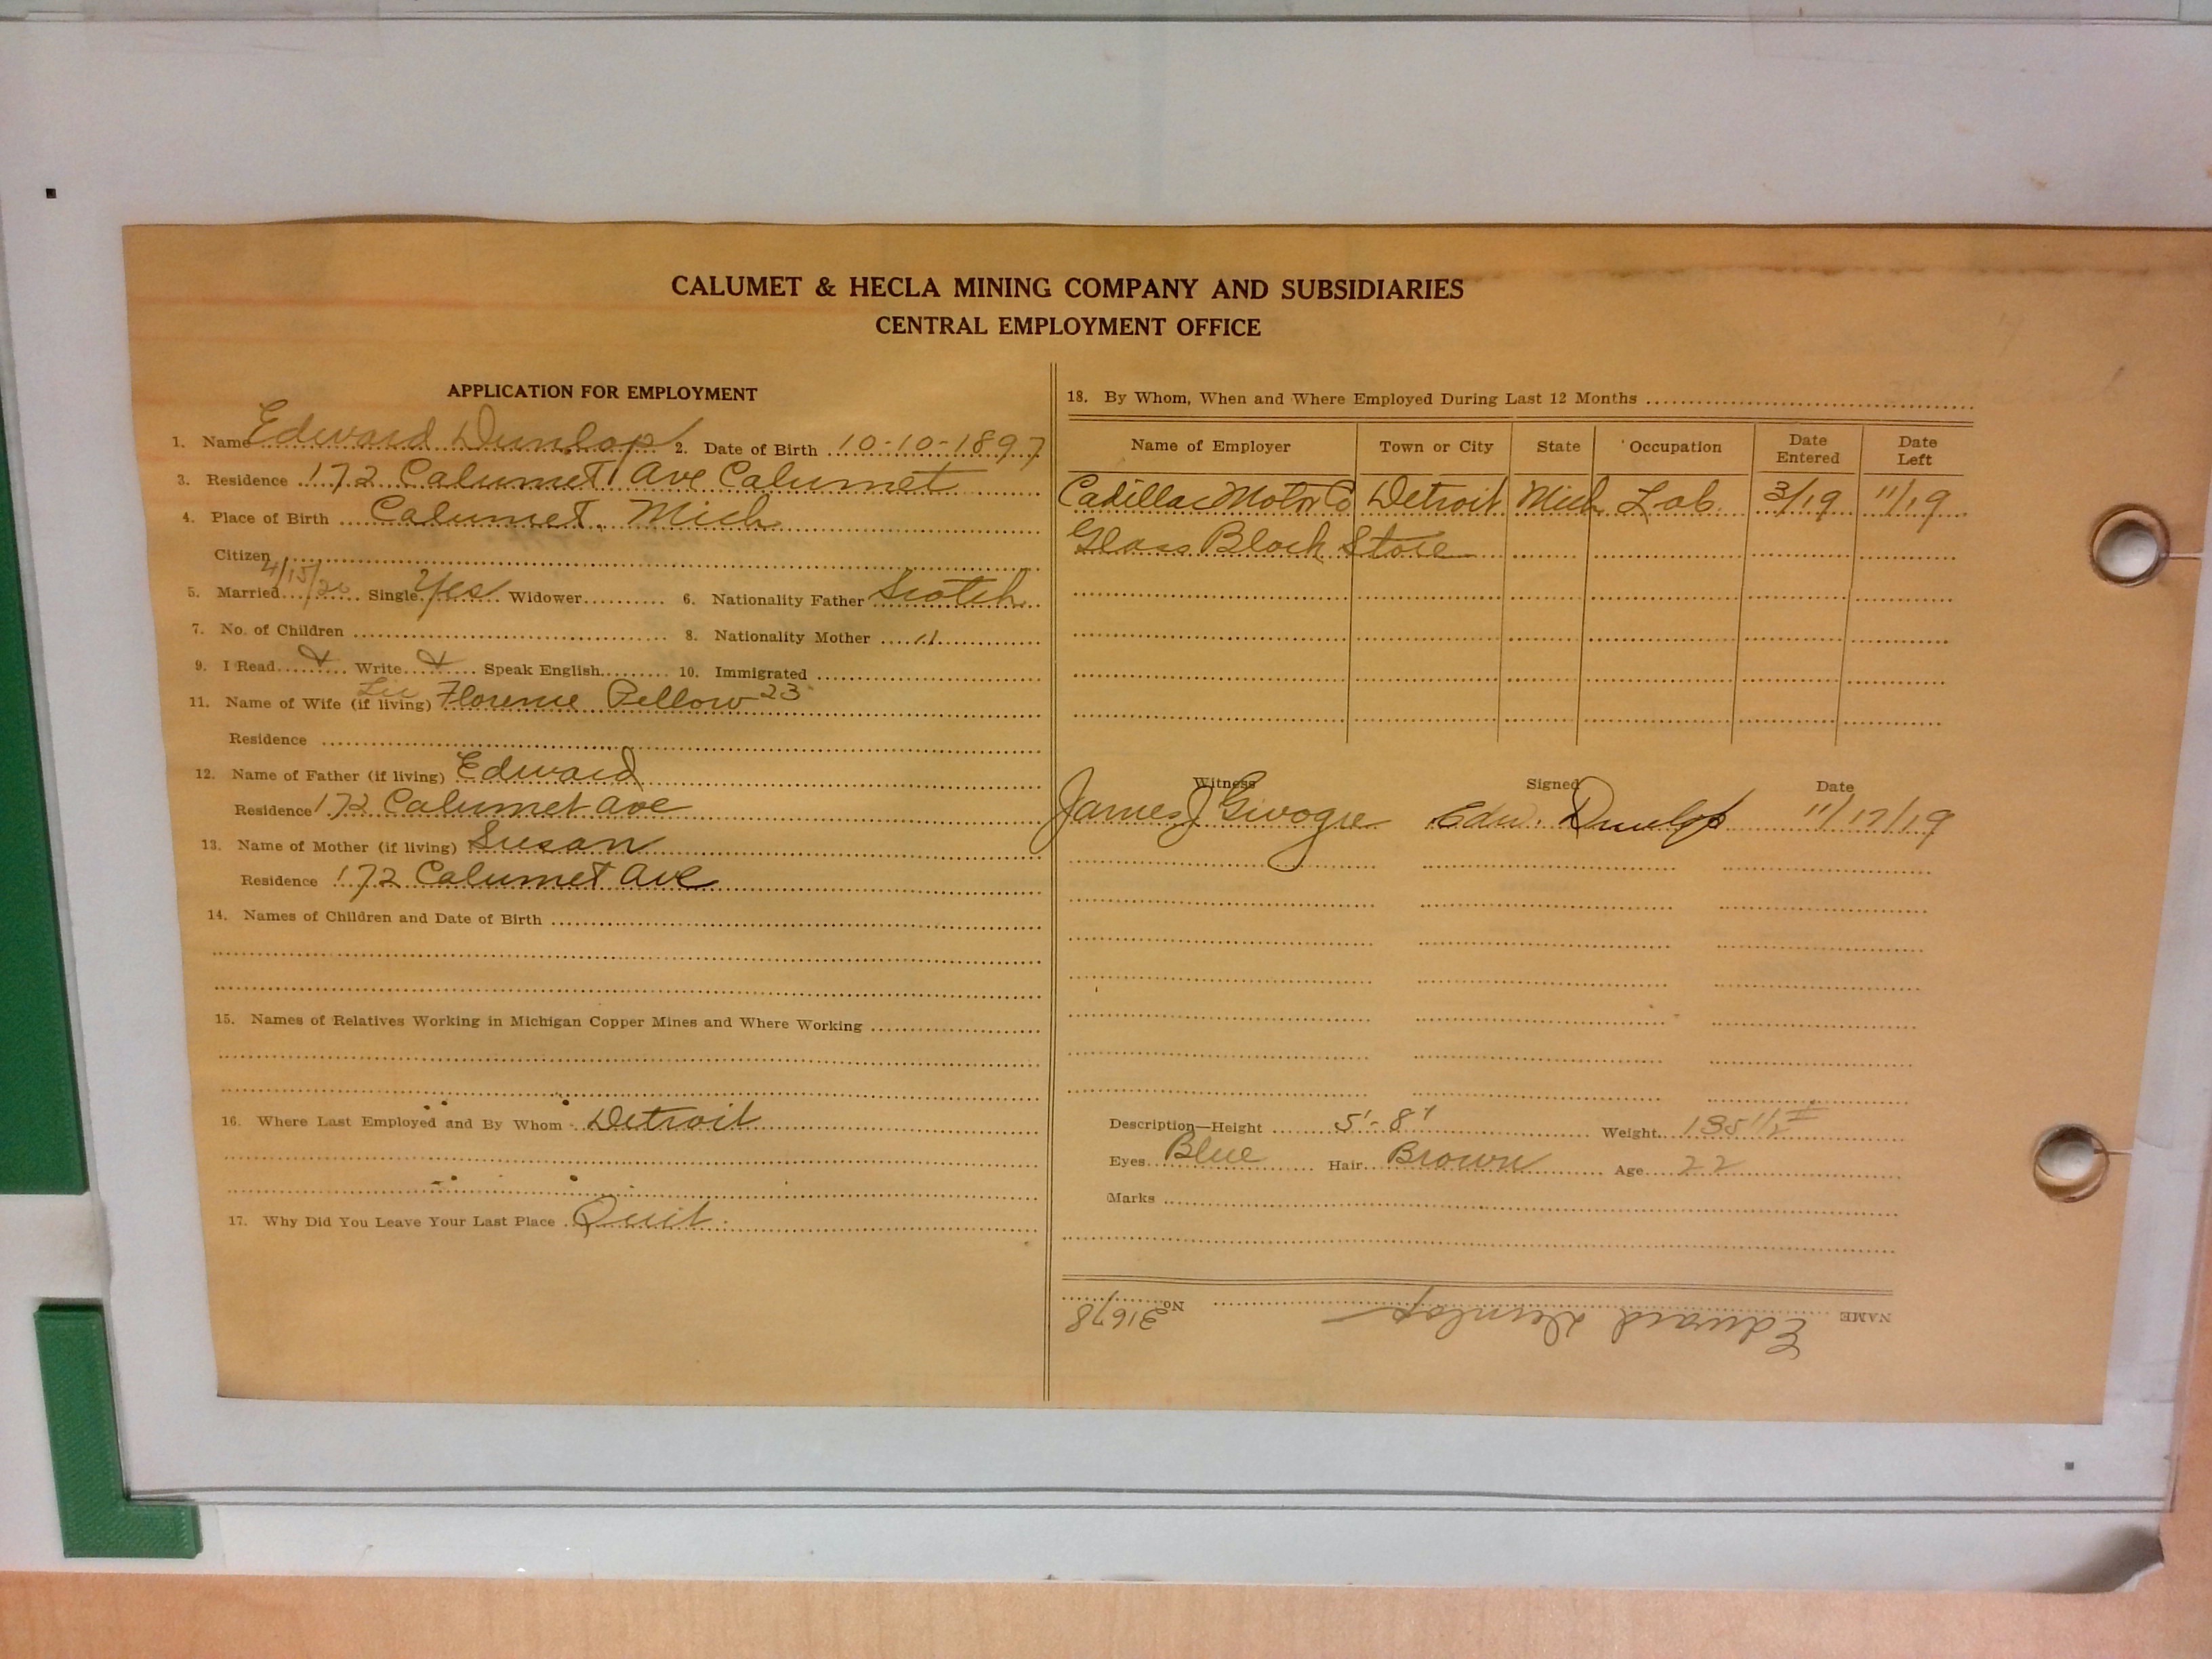 CALUMET & HECLA MINING COMPANY AND SUBSIDIARIES
CENTRAL EMPLOYMENT OFFICE
APPLICATION FOR EMPLOYMENT
1. Name Edward Dunlop 2. Date of Birth 10-10-1897
3. Residence 172 Calumet Ave Calumet
4. Place of Birth Calumet, Mich
Citizen
5. Married 4/15/20 Single Yes Widower 6. Nationality Father Scotch
7. No. of Children 8. Nationality Mother "
9. I Read Write Speak English 10. Immigrated
11. Name of Wife (if living) Florence Pellow 23
Residence
12. Name of Father (if living) Edward
Residence 172 Calumet Ave
13. Name of Mother (if living) Susan
Residence 172 Calumet Ave
14. Names of Children and Date of Birth
15. Names of Relatives Working in Michigan Copper Mines and Where Working
16. Where Last Employed and By Whom Detroit
17. Why Did You Leave Your Last Place Quit
18. By Whom, When and Where Employed During Last 12 Months
Name of Employer Town or City State Occupation Date Entered Date Left
Cadillac Motor Co Detroit Mich Lab. 3/19 11/19
Glass Block Store
Witness Signed Date
James J Edw. Dunlop 11/17/19
Description—Height 5'-8" Weight 135 1/2
Eyes Blue Hair Brown Age 22
Marks
NAME Edward Dunlop No. 31678